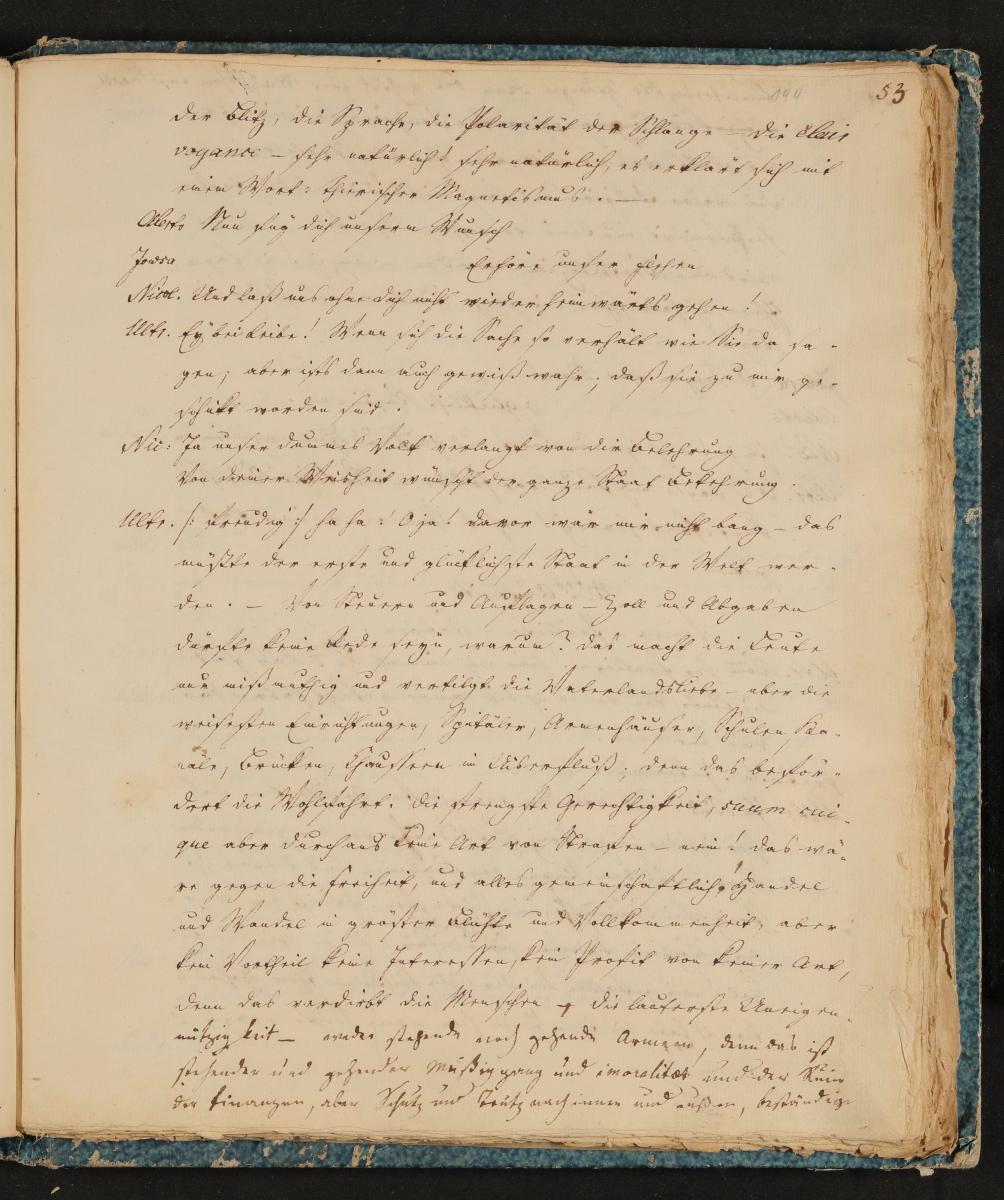 144 53
der Blitz, die Sprache, die Polarität der Schlange – die Clair
voyance – sehr natürlich! sehr natürlich, es erklärt sich mit
einem Wort: thierischer Magnetismus. —
Alb. Nun füg dich unserm Wunsch
Erhöre unser Flehen
Nicol. Und laß uns ohne dich nicht wieder heimwärts gehen!
Ultr. Ey bei leibe! Wenn sich die Sache so verhält wie Sie da sa-
gen; aber ists dann auch gewiß wahr, daß sie zu mir ge-
schickt worden sind.
Nic: Ja unser dummes Volk verlangt von dir Belehrung
Von deiner Weisheit wünscht der ganze Staat Bekehrung.
Ultr. /: freudig :/ ha ha! O ja! davor wär mir nicht bang – das
müßte der erste und glücklichste Staat in der Welt wer-
den. – Von Steuern und Auflagen – Zoll und Abgaben
dürfte keine Rede seyn, warum? das macht die Leute
nur mißmuthig und vertilgt die Vaterlandsliebe – aber die
weisesten Einrichtungen, Spitäler, Armenhäuser, Schulen, Ka-
näle, Brücken, Chausseen in Uiberfluß; denn das beför-
dert die Wohlfahrt. die strengste Gerechtigkeit, suum cui-
que aber durchaus keine Art von Strafen – nein! das wä-
re gegen die Freiheit, und alles gemeinschaftlich, Handel
und Wandel in größter Blühte und Vollkommenheit, aber
kein Vortheil keine Interessen, kein Profit von keiner Art,
denn das verdirbt die Menschen, die lauterste Uneigen-
nützigkeit – weder stehende noch gehende Armeen, denn das ist
stehender und gehender Müßiggang und imoralitæt und der Ruin
der Finanzen, aber Schutz und Trutz nach innen und außen, beständig